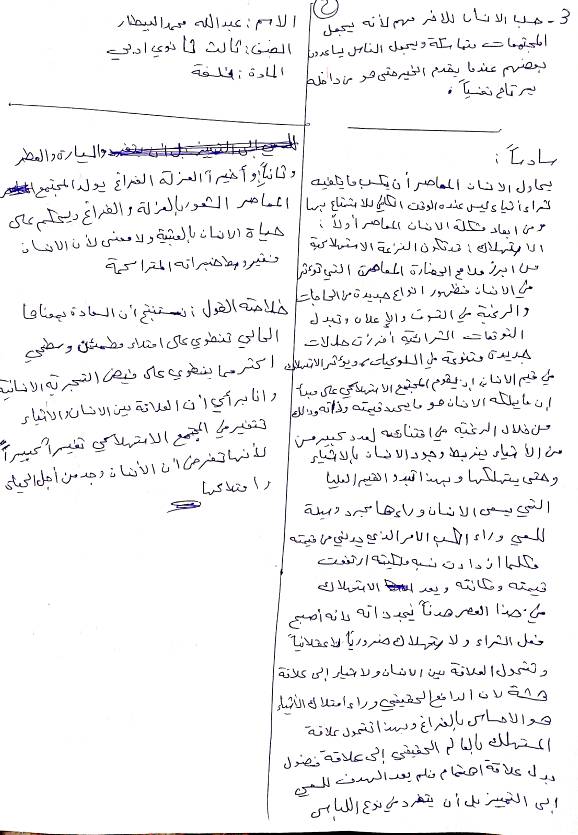 (2)
3- حب الانسان للآخر مهم لأنه يجعل
المجتمعات متماسكة ويجعل الناس يساعدون
بعضهم عندما يقدم الخير حتى هو من داخله
يرتاح نفسياً .
سادساً :
يحاول الانسان المعاصر أن يكسب ما يكفيه
لشراء أشياء ليس عنده الوقت الكافي للاستمتاع بها
ومن ابعاد مشكلة الانسان المعاصر أولاً :
الاستهلاك : قد تكون النزعة الاستهلاكية
من ابرز ملامح الحضارة المعاصرة التي تؤثر
في الانسان فظهور انواع جديدة من الحاجات
والرغبة في التسوق والإعلان وتبدل
التوقعات الشرائية أفرزت حالات
جديدة ومتنوعة من السلوكيات ويؤثر الاستهلاك
في قيم الانسان إذ يقوم المجتمع الاستهلاكي على مبدأ
إن ما يملكه الانسان هو ما يحدد قيمته وذاته وذلك
من خلال الرغبة في اقتنائه لعدد كبير من
من الأشياء يرتبط وجود الانسان بالأشياء
وحتى يمتلكها وبهذا تبدو القيم العليا
التي يسعى الانسان وراءها مجرد وسيلة
للسعي وراء الكسب الامر الذي يدني من قيمته
فكلما ازدادت نسبة ملكيته ارتفعت
قيمته ومكانته ويعد الاستهلاك
في هذا العصر هدفاً بحد ذاته لأنه أصبح
فعل الشراء والاستهلاك ضرورياً لا عقلانياً
وتتحول العلاقة بين الانسان والاشياء إلى علاقة
هشة لان الدافع الحقيقي وراء امتلاك الأشياء
هو الاحساس بالفراغ وبهذا تتحول علاقة
المستهلك بالعالم الحقيقي إلى علاقة فضول
بدل علاقة اهتمام فلم يعد الهدف السعي
إلى التمييز بل أن يتفرد في نوع اللباس
الاسم : عبدالله محمد البيطار
الصف : ثالث ثانوي ادبي
المادة : فلسفة
والسيارة والعطر
وثانياً وأخيراً العزلة الفراغ يولد المجتمع
المعاصر الشعور بالعزلة والفراغ ويحكم على
حياة الانسان بالعبثية ولا معنى لأن الانسان
فقير وسط خبراته المتراكمة
خلاصة القول : نستنتج أن السعادة بمعناها
الحالي تنطوي على امتداد مطمئن وسطحي
اكثر مما ينطوي على فيض التجربة الانسانية
وانا برأيي أن العلاقة بين الانسان والأشياء
تتغير في المجتمع الاستهلاكي تغييراً كبيراً
لأنها تفرض أن الأنسان وجد من أجل الحياة
وامتلاكها